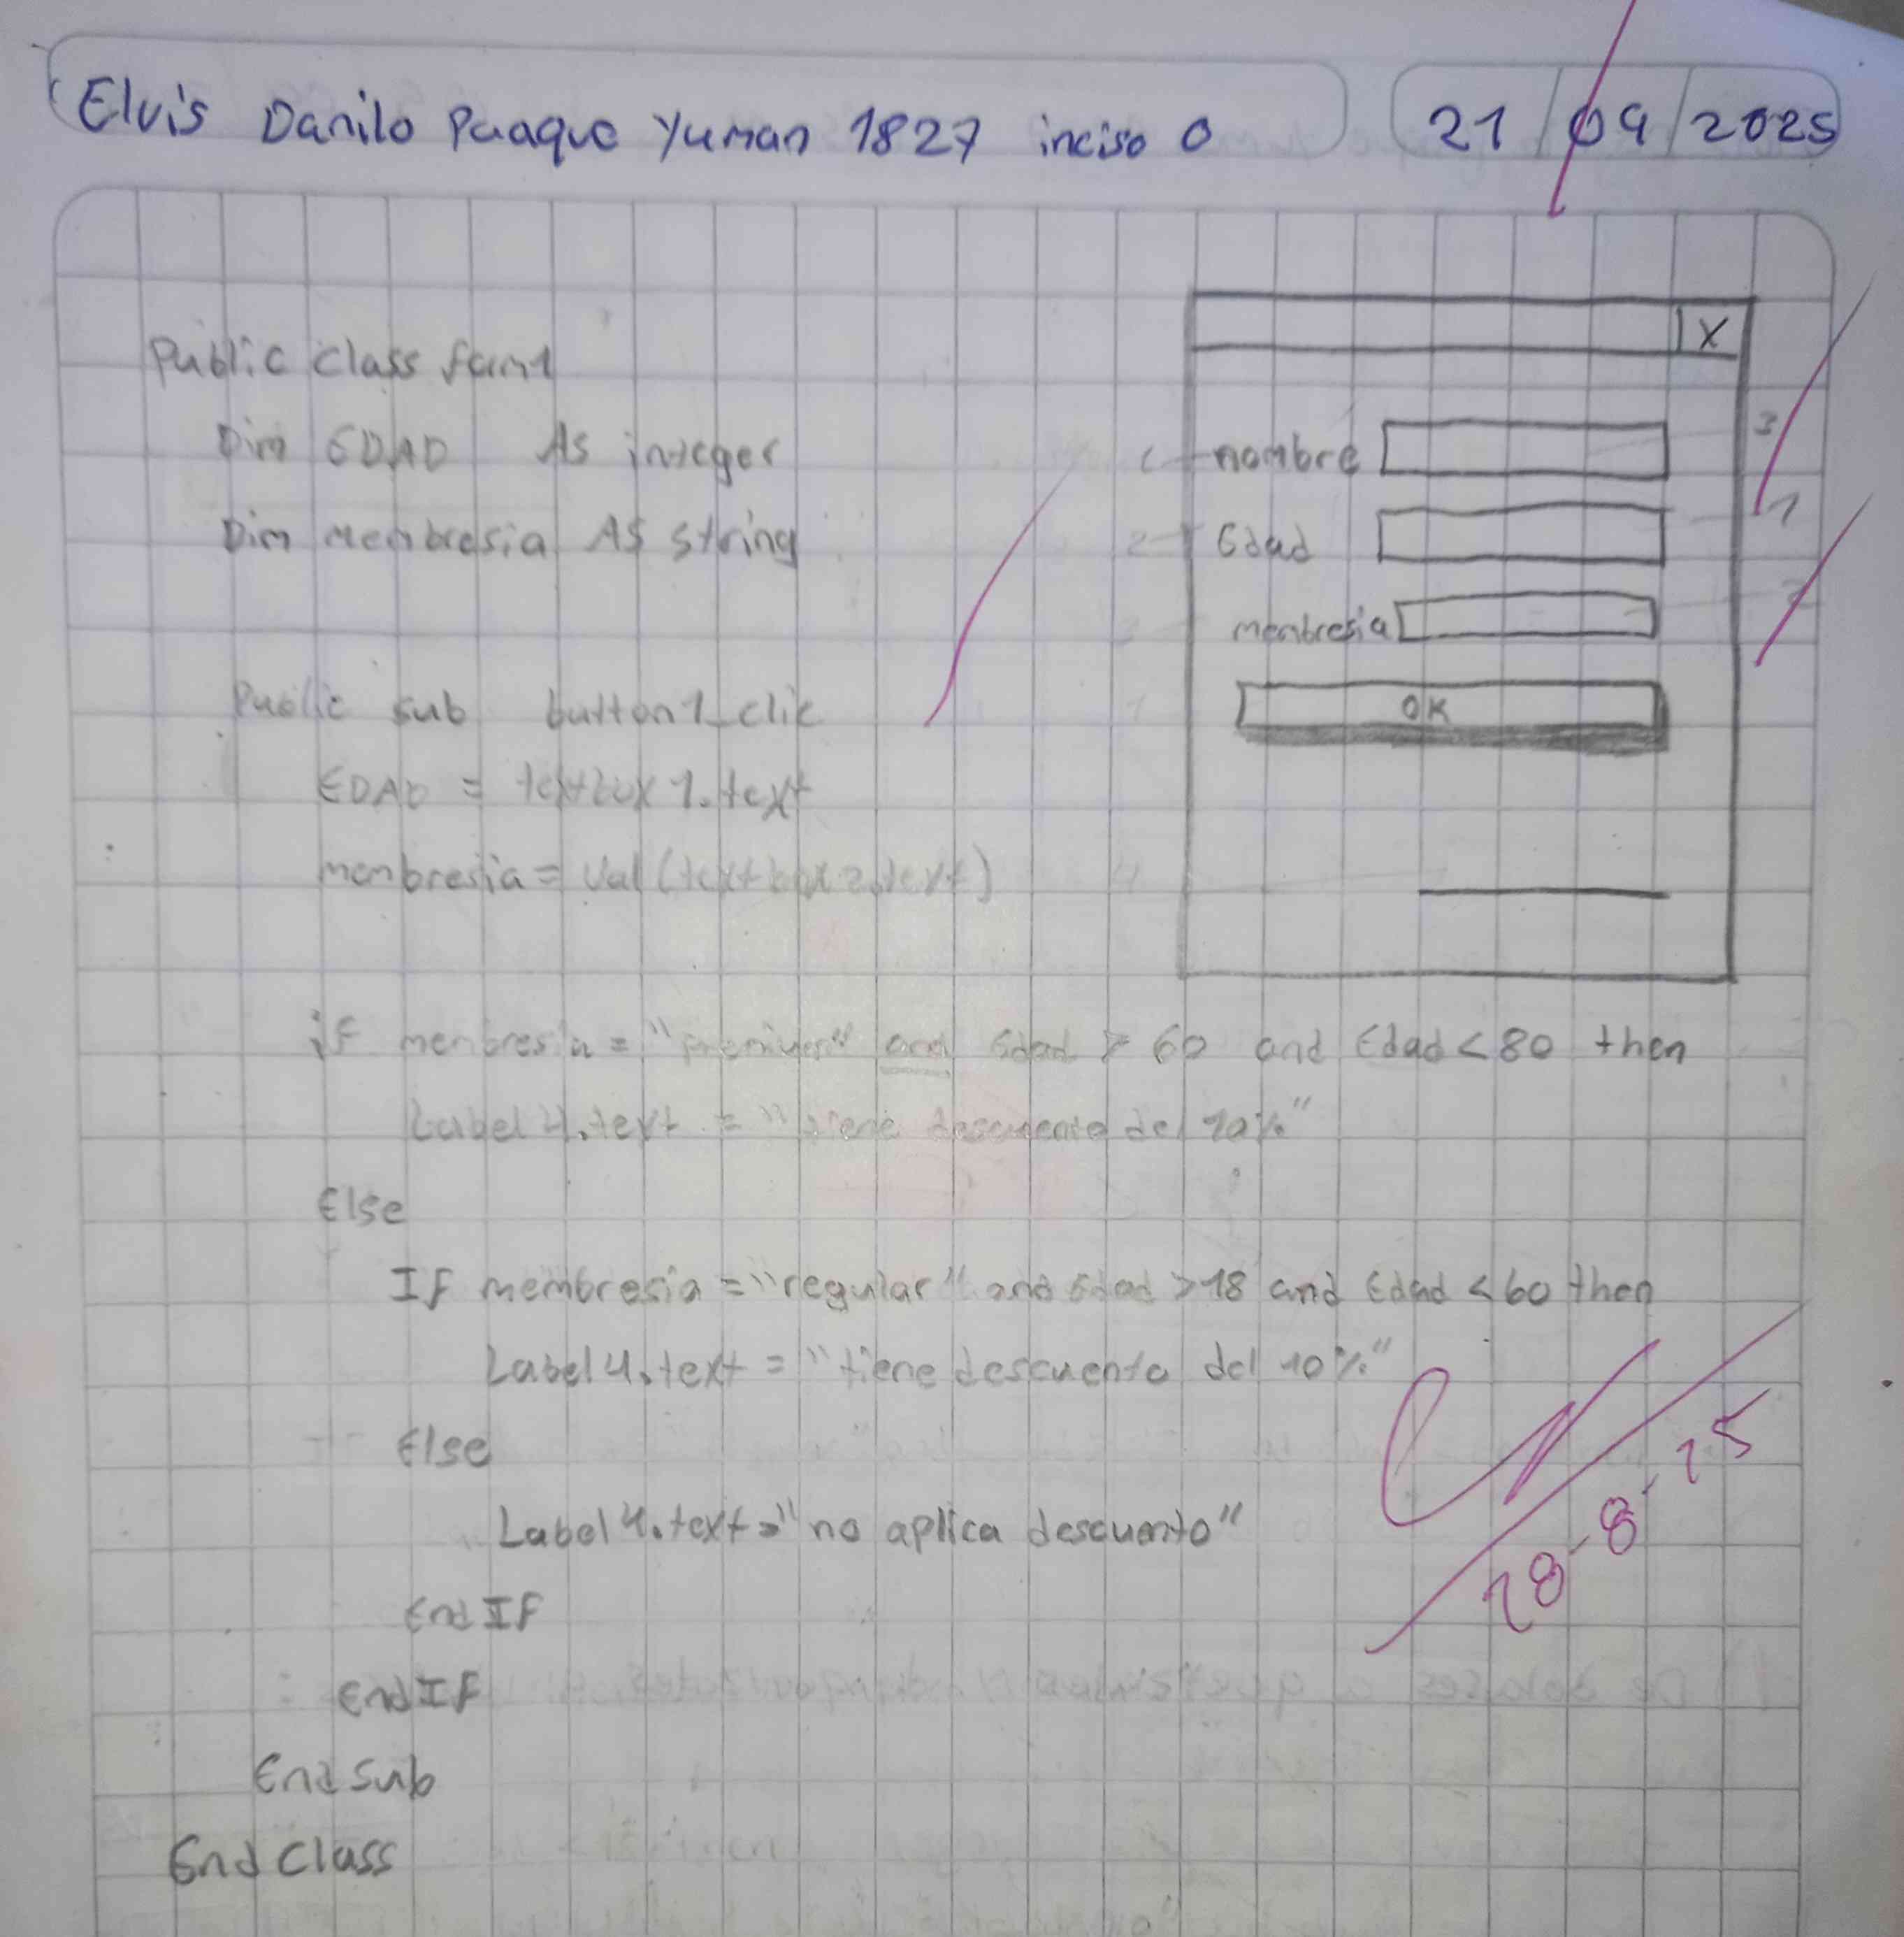 Elvis Danilo Paaque Yuman 1827 inciso O
21/09/2025
Public class form1
Dim EDAD As integer
Dim membresia As string
Public sub button1_clic
EDAD = textbox1.text
membresia = Val (textbox2.text)
X
1 nombre 3
2 Edad 1
3 membresia 2
1 OK
4
if membresia = "premium" and Edad > 60 and Edad < 80 then
Label4.text = "tiene descuento del 20%"
Else
If membresia = "regular" and Edad > 18 and Edad < 60 then
Label4.text = "tiene descuento del 10%"
Else
Label4.text = "no aplica descuento"
End IF
End IF
End Sub
End Class
28-8-25